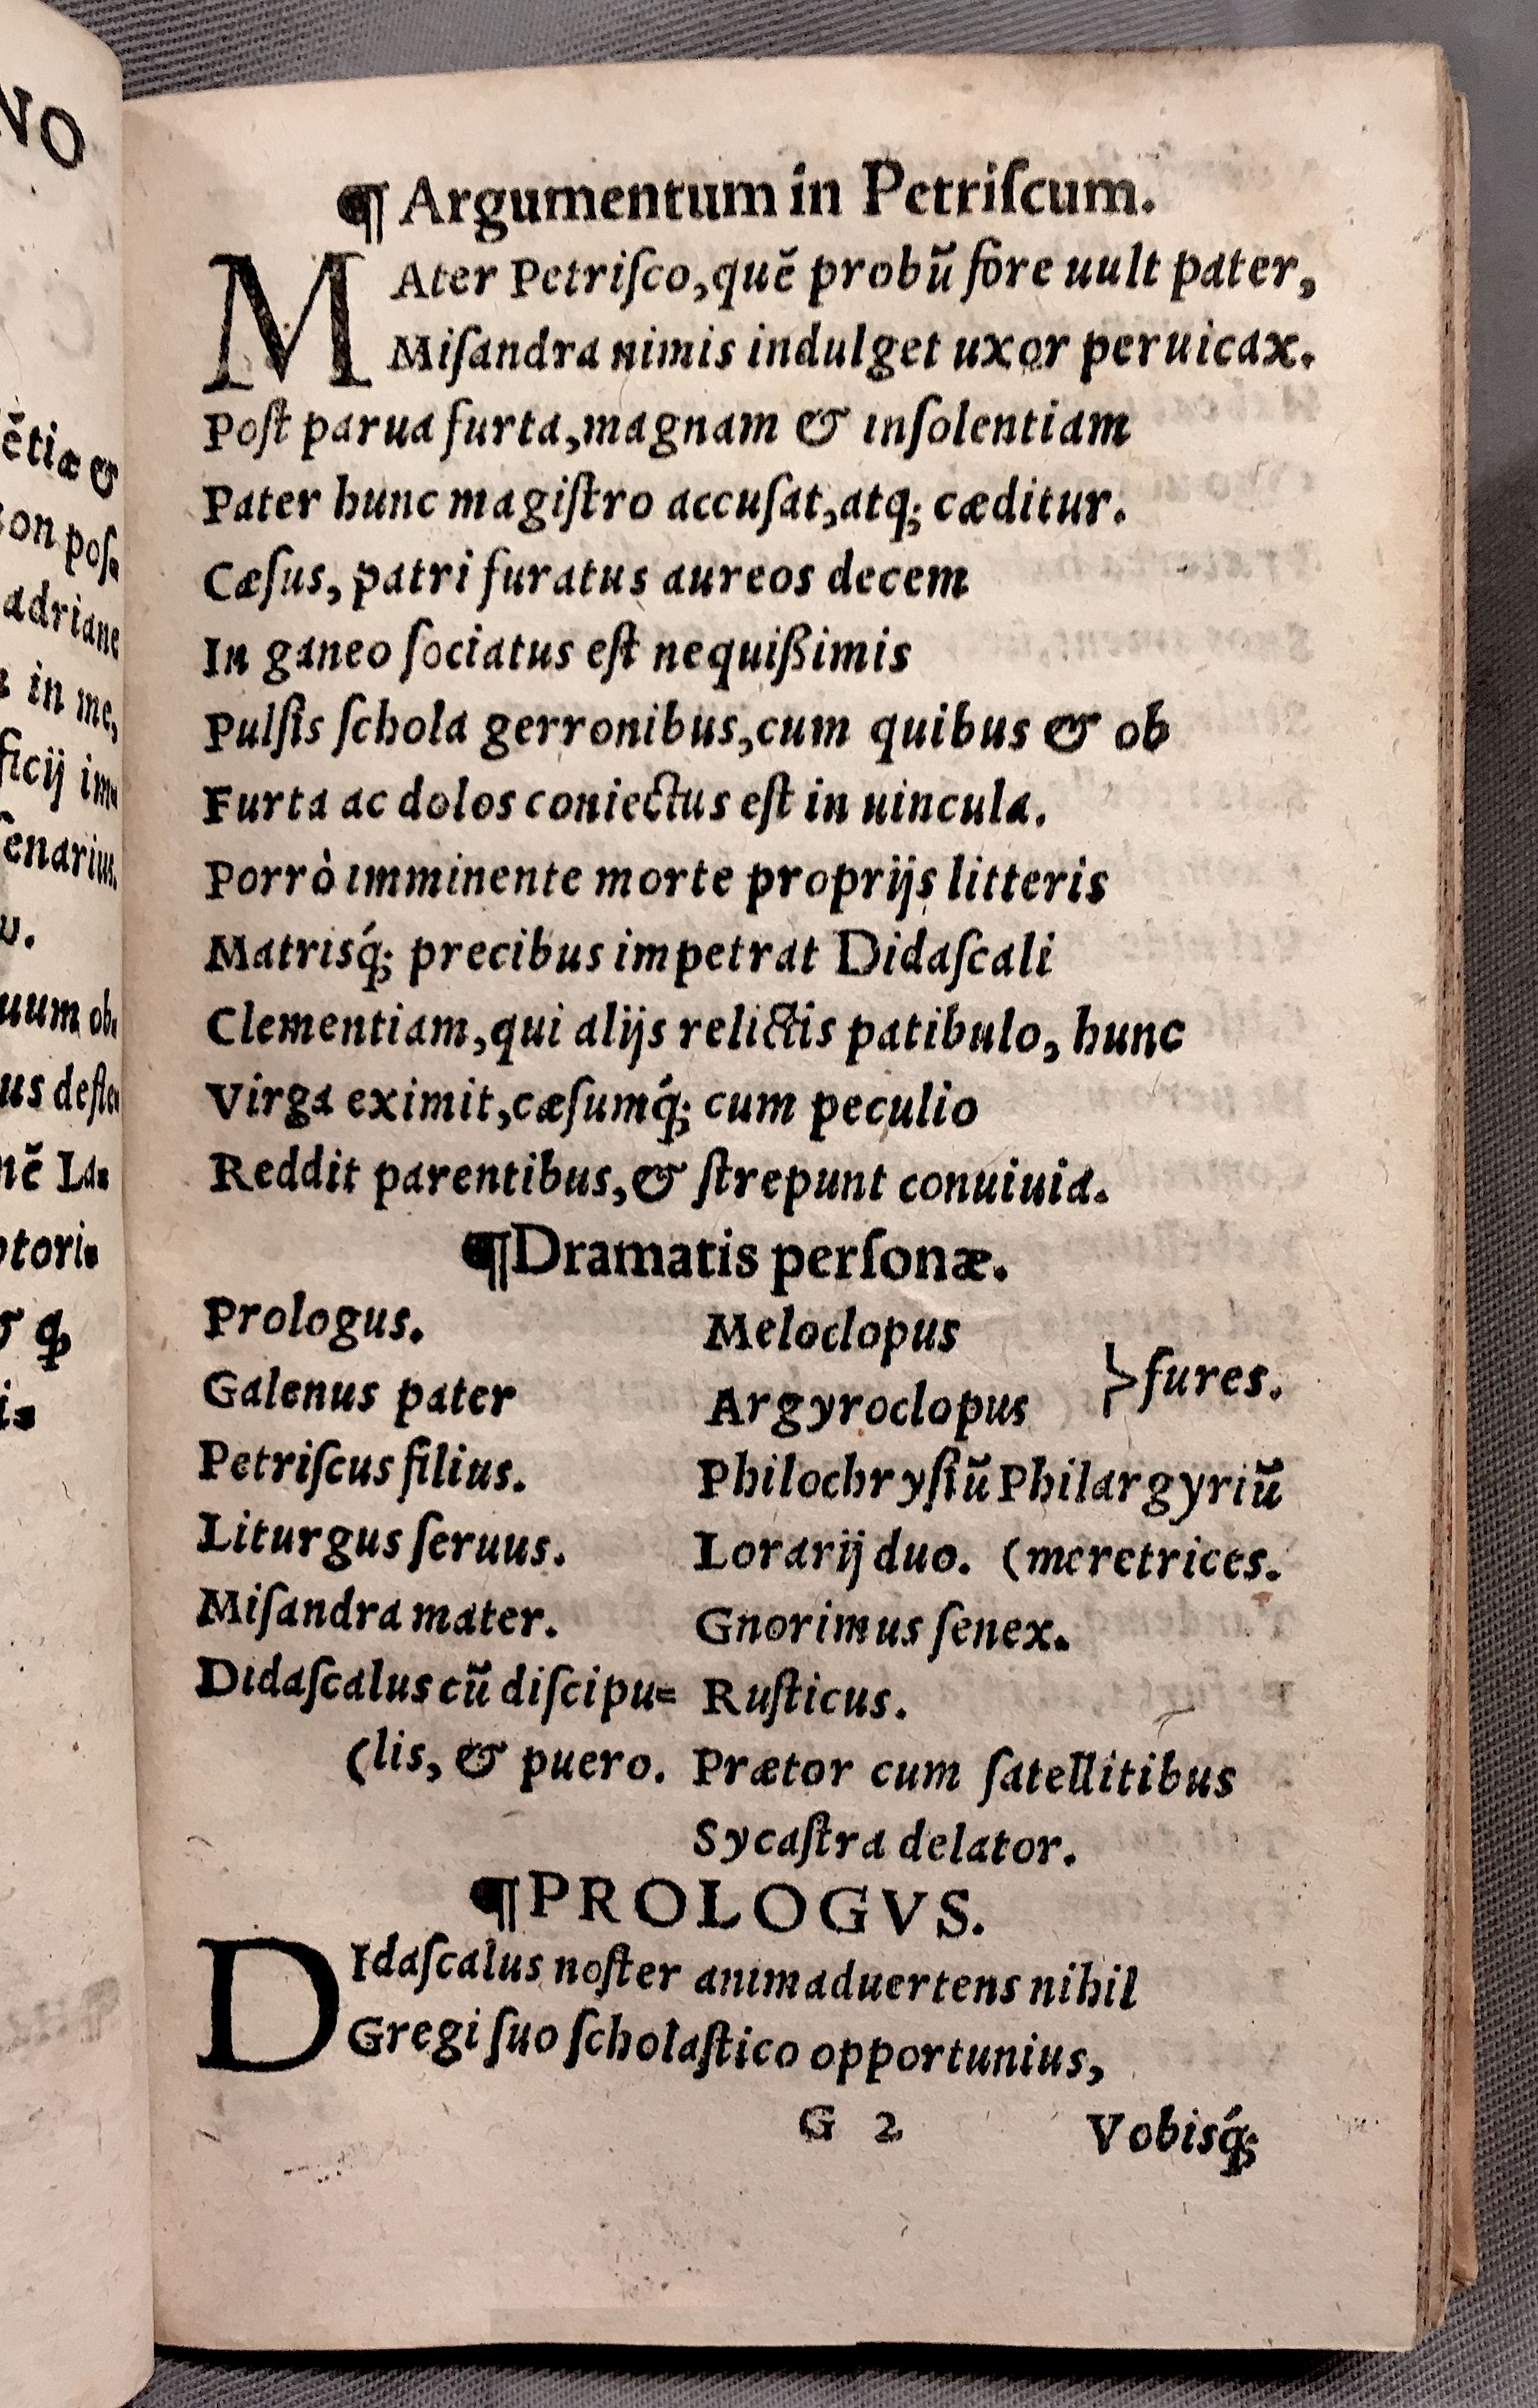 NO
ẽtiæ &
adriane
in me,
ficij
uum ob.
¶ Argumentum in Petriſcum.
MAter Petriſco,quẽ probũ fore uult pater,
Miſandra nimis indulget uxor peruicax.
Poſt parua furta,magnam & inſolentiam
Pater hunc magiſtro accuſat,atq; cæditur.
Cæſus, patri furatus aureos decem
In ganeo ſociatus eſt nequißimis
Pulſis ſchola gerronibus,cum quibus & ob
Furta ac dolos coniectus eſt in uincula.
Porrò imminente morte proprijs litteris
Matrisq́; precibus impetrat Didaſcali
Clementiam,qui alijs relictis patibulo, hunc
Virga eximit,cæſumq́; cum peculio
Reddit parentibus,& ſtrepunt conuiuia.
¶Dramatis perſonæ.
Prologus.
Galenus pater
Petriſcus filius.
Liturgus ſeruus.
Miſandra mater.
Didaſcalus cũ diſcipu=
(lis, & puero.
Meloclopus
Argyroclopus }fures.
Philochryſiũ Philargyriũ
Lorarij duo. (meretrices.
Gnorimus ſenex.
Ruſticus.
Prætor cum ſatellitibus
Sycaſtra delator.
¶PROLOGVS.
DIdaſcalus noſter animaduertens nihil
Gregi ſuo ſcholaſtico opportunius,
G 2 Vobisq́;